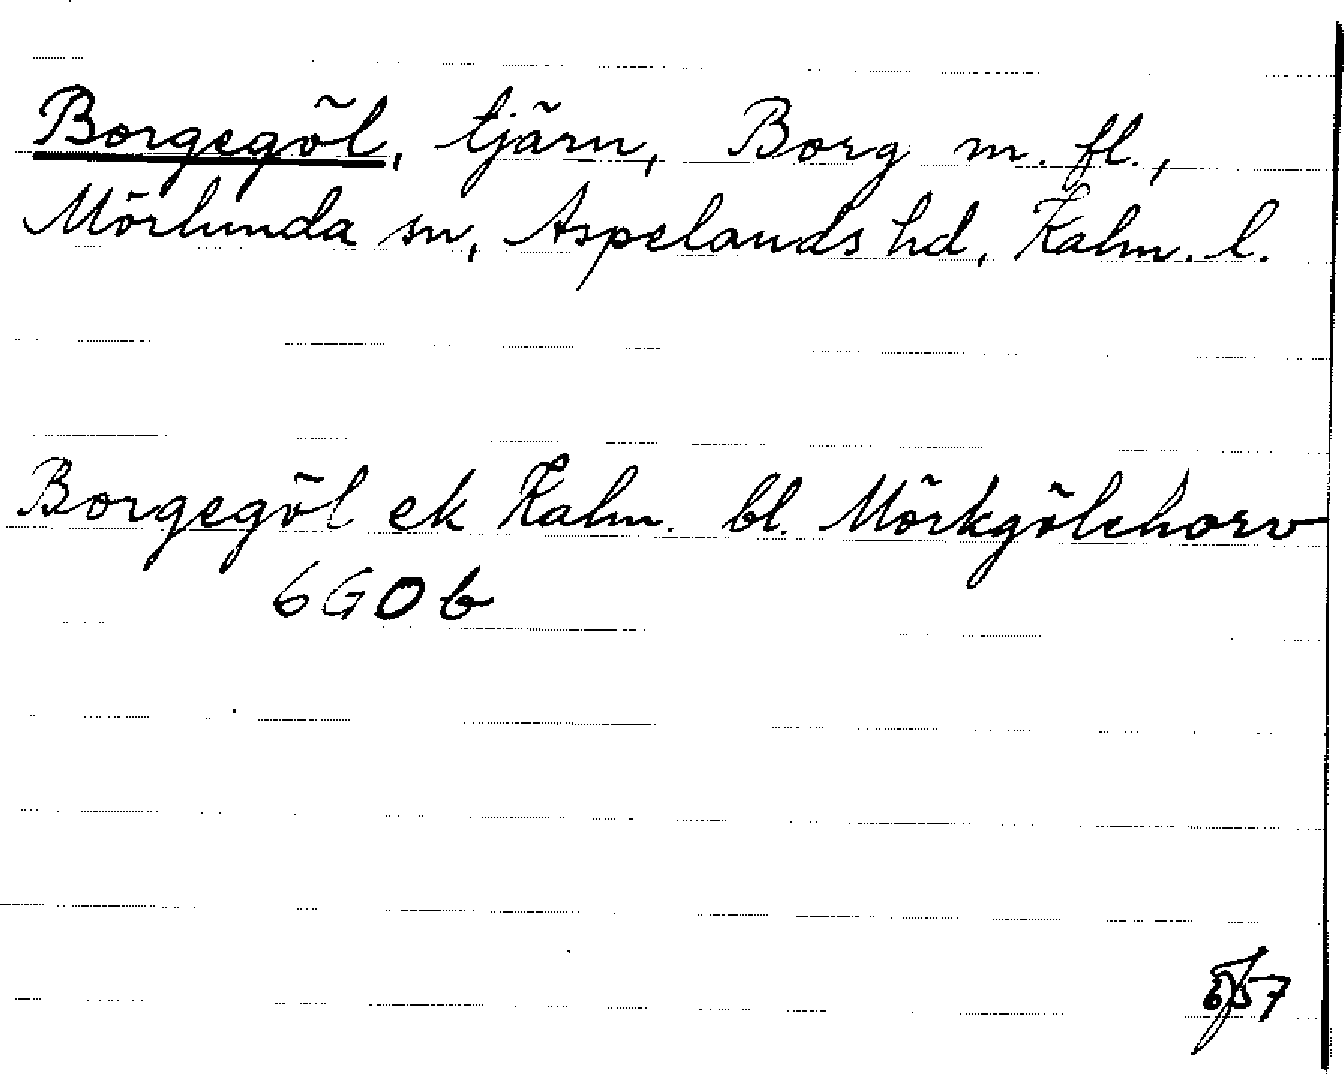 Borgegöl, tjärn, Borg m. fl.,
Mörlunda sn, Aspelands hd, Kalm. l.
Borgegöl ek Kalm. bl. Mörkgölehorv
6G0b